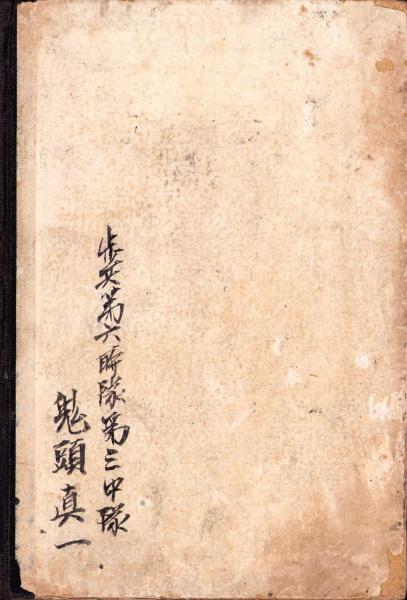 歩兵第六聯隊第三中隊
鬼頭真一